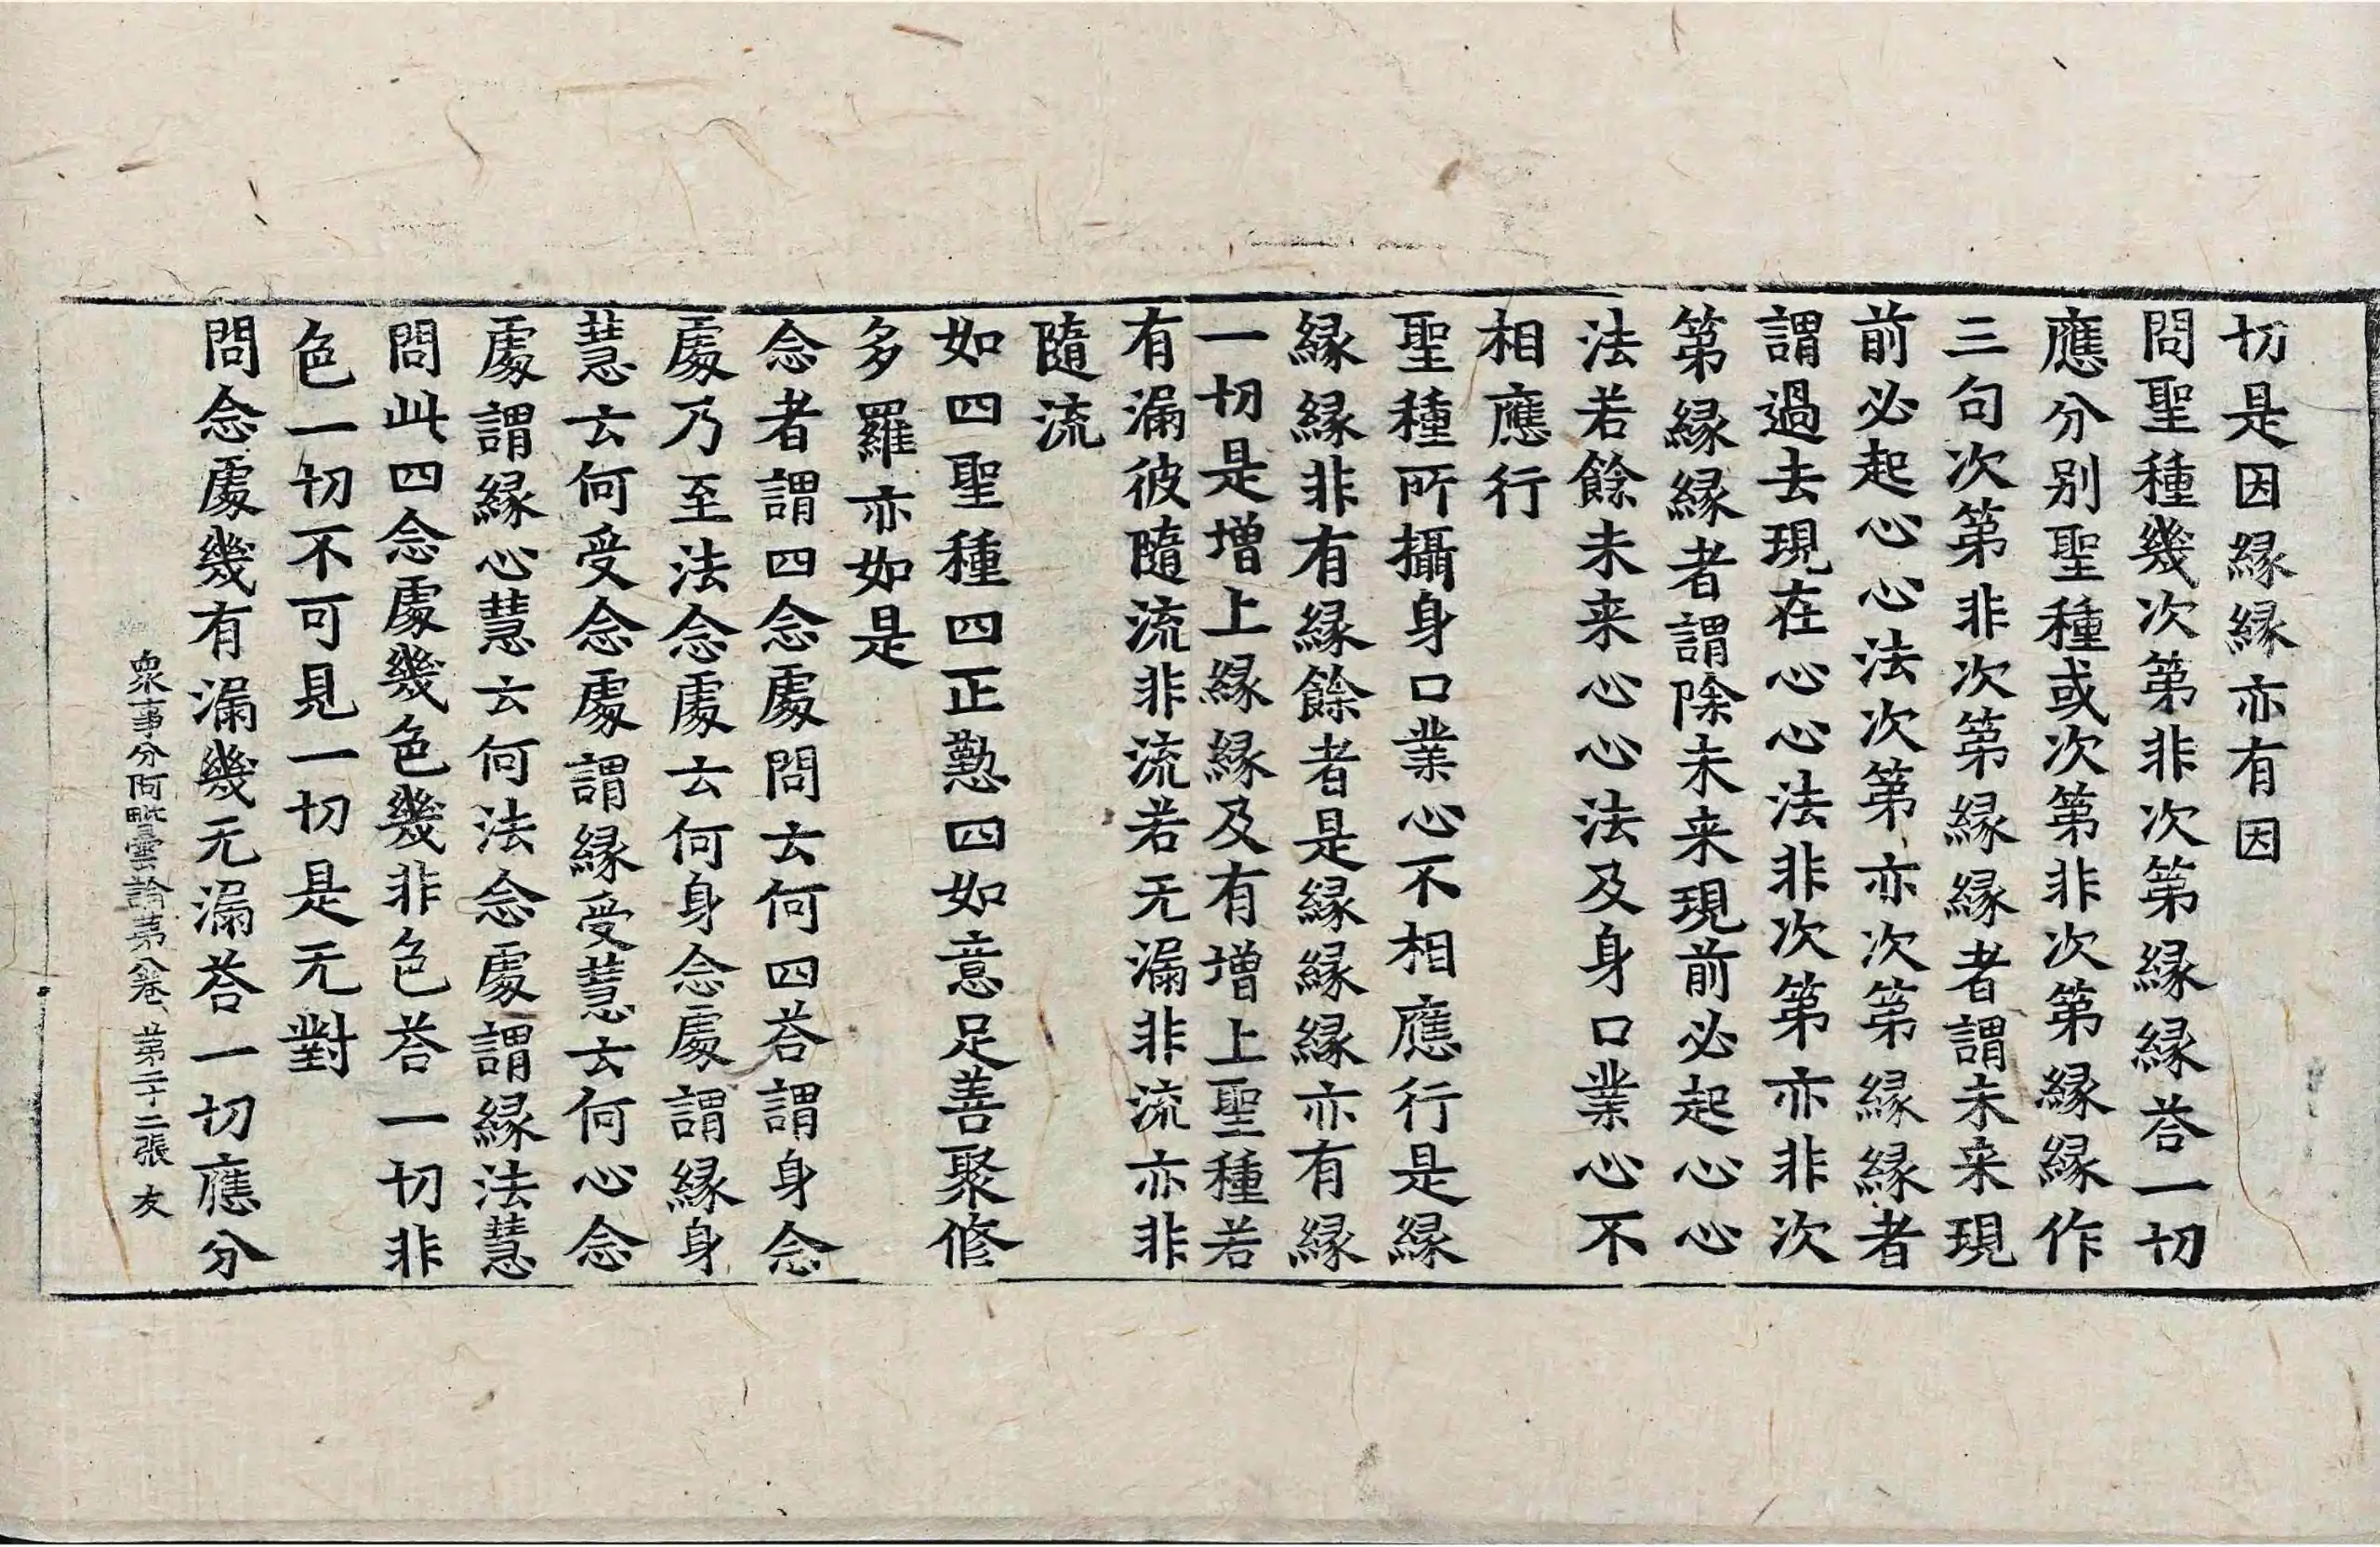 切是因縁縁亦有因
問聖種幾次第非次第縁縁荅一切
應分别聖種或次第非次第縁縁作
三句次第非次第縁縁者謂未来現
前必起心心法次第亦次第縁縁者
謂過去現在心心法非次第亦非次
第縁縁者謂除未来現前必起心心
法若餘未来心心法及身口業心不
相應行
聖種所攝身口業心不相應行是縁
縁縁非有縁餘者是縁縁縁亦有縁
一切是增上縁縁及有增上聖種若
有漏彼隨流非流若无漏非流亦非
隨流
如四聖種四正懃四如意足善聚修
多羅亦如是
念者謂四念處問云何四荅謂身念
處乃至法念處云何身念處謂縁身
慧云何受念處謂縁受慧云何心念
處謂縁心慧云何法念處謂縁法慧
問此四念處幾色幾非色荅一切非
色一切不可見一切是无對
問念處幾有漏幾无漏荅一切應分
衆事分阿毗曇論第八卷 第二十二張 友